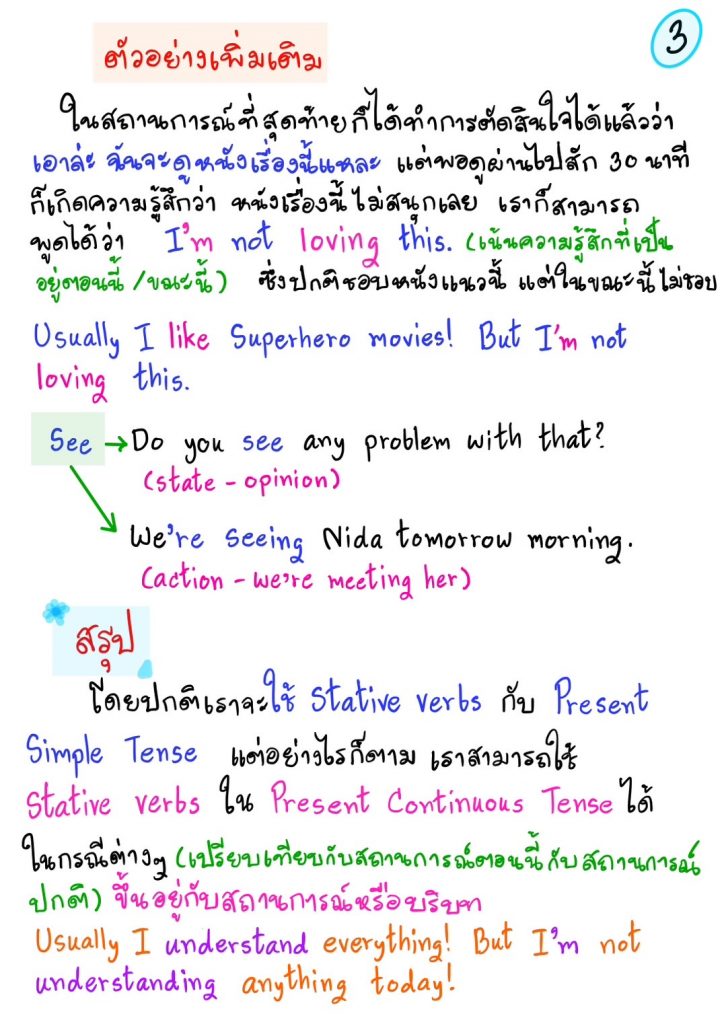 3
ตัวอย่างเพิ่มเติม
ในสถานการณ์ที่สุดท้ายก็ได้ทำการตัดสินใจได้แล้วว่า
เอาล่ะ ฉันจะดูหนังเรื่องนี้แหละ แต่พอดูผ่านไปสัก 30 นาที
ก็เกิดความรู้สึกว่า หนังเรื่องนี้ ไม่สนุกเลย เราก็สามารถ
พูดได้ว่า I'm not loving this. (เน้นความรู้สึกที่เป็น
อยู่ตอนนี้ /ขณะนี้) ซึ่งปกติชอบหนังแนวนี้ แต่ในขณะนี้ ไม่ชอบ
Usually I like Superhero movies! But I'm not
loving this.
See → Do you see any problem with that?
(state - opinion)
We're seeing Nida tomorrow morning.
(action - we're meeting her)
สรุป
โดยปกติเราจะใช้ Stative verbs กับ Present
Simple Tense แต่อย่างไรก็ตาม เราสามารถใช้
Stative verbs ใน Present Continuous Tense ได้
ในกรณีต่างๆ (เปรียบเทียบกับสถานการณ์ตอนนี้ กับ สถานการณ์
ปกติ) ขึ้นอยู่กับสถานการณ์หรือบริบท
Usually I understand everything! But I'm not
understanding anything today!